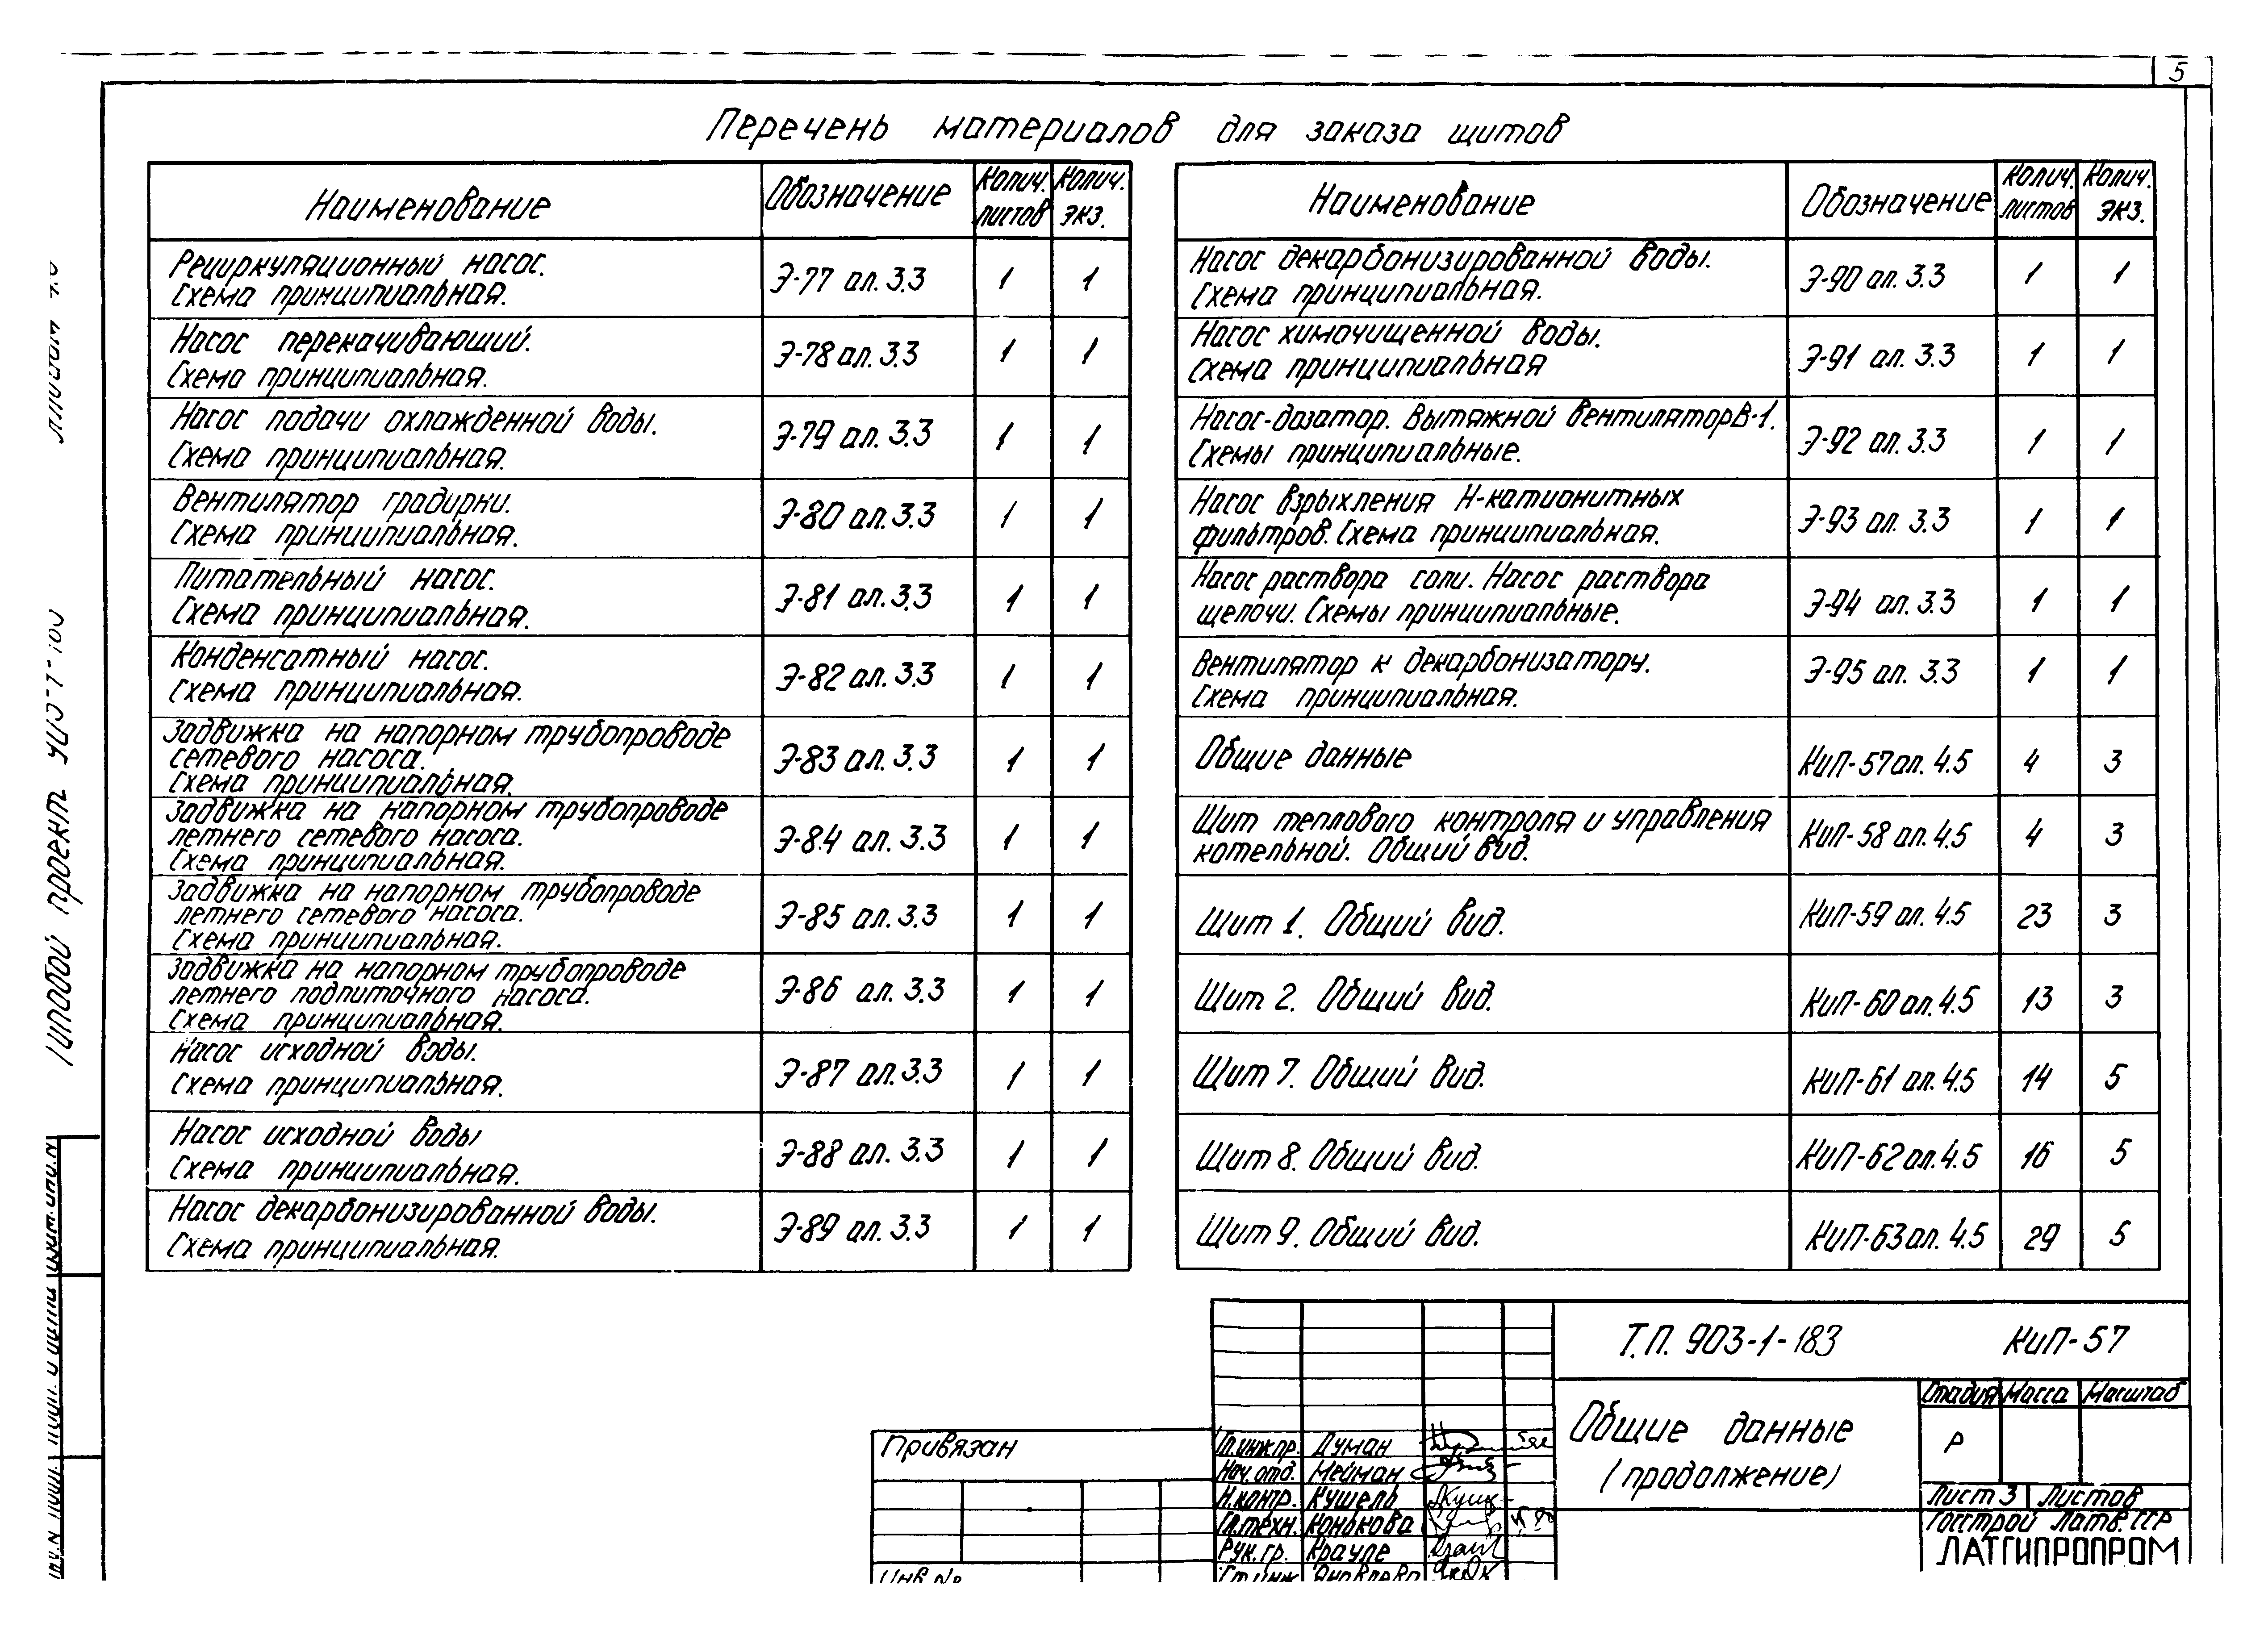 5
Перечень материалов для заказа щитов
Наименование Обозначение Колич. листов Колич. экз.
Рециркуляционный насос.
Схема принципиальная.
Э-77 ал. 3.3 1 1
Насос перекачивающий.
Схема принципиальная.
Э-78 ал. 3.3 1 1
Насос подачи охлажденной воды.
Схема принципиальная.
Э-79 ал. 3.3 1 1
Вентилятор градирни.
Схема принципиальная.
Э-80 ал. 3.3 1 1
Питательный насос.
Схема принципиальная.
Э-81 ал. 3.3 1 1
Конденсатный насос.
Схема принципиальная.
Э-82 ал. 3.3 1 1
Задвижка на напорном трубопроводе
сетевого насоса.
Схема принципиальная.
Э-83 ал. 3.3 1 1
Задвижка на напорном трубопроводе
летнего сетевого насоса.
Схема принципиальная.
Э-84 ал. 3.3 1 1
Задвижка на напорном трубопроводе
летнего сетевого насоса.
Схема принципиальная.
Э-85 ал. 3.3 1 1
Задвижка на напорном трубопроводе
летнего подпиточного насоса.
Схема принципиальная.
Э-86 ал. 3.3 1 1
Насос исходной воды.
Схема принципиальная.
Э-87 ал. 3.3 1 1
Насос исходной воды
Схема принципиальная.
Э-88 ал. 3.3 1 1
Насос декарбонизированной воды.
Схема принципиальная.
Э-89 ал. 3.3 1 1
Наименование Обозначение Колич. листов Колич. экз.
Насос декарбонизированной воды.
Схема принципиальная.
Э-90 ал. 3.3 1 1
Насос химочищенной воды.
Схема принципиальная
Э-91 ал. 3.3 1 1
Насос-дозатор. Вытяжной вентилятор В-1.
Схемы принципиальные.
Э-92 ал. 3.3 1 1
Насос взрыхления Н-катионитных
фильтров. Схема принципиальная.
Э-93 ал. 3.3 1 1
Насос раствора соли. Насос раствора
щелочи. Схемы принципиальные.
Э-94 ал. 3.3 1 1
Вентилятор к декарбонизатору.
Схема принципиальная.
Э-95 ал. 3.3 1 1
Общие данные КиП-57 ал. 4.5 4 3
Щит теплового контроля и управления
котельной. Общий вид.
КиП-58 ал. 4.5 4 3
Щит 1. Общий вид. КиП-59 ал. 4.5 23 3
Щит 2. Общий вид. КиП-60 ал. 4.5 13 3
Щит 7. Общий вид. КиП-61 ал. 4.5 14 5
Щит 8. Общий вид. КиП-62 ал. 4.5 16 5
Щит 9. Общий вид. КиП-63 ал. 4.5 29 5
Типовой проект
Привязан
Инв №
Гл.инж.пр. Думан
Нач. отд. Мейман
Н.контр. Кушель
Гл.техн. Конькова
Рук. гр. Крауле
Ст.инж.
Т.П. 903-1-183 КиП-57
Общие данные
(продолжение)
Стадия Масса Масштаб
Р
Лист 3 Листов
Госстрой Латв. ССР
ЛАТГИПРОПРОМ